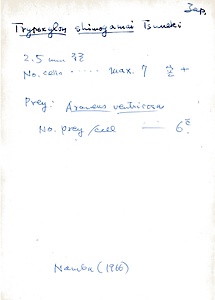 Jap.
Trypoxylon shimogamai Tsuneki
2.5 mm
No. cells ····· max. 7 +
Prey: Araneus ventricosus
No. prey / cell — 6
Namba (1966)